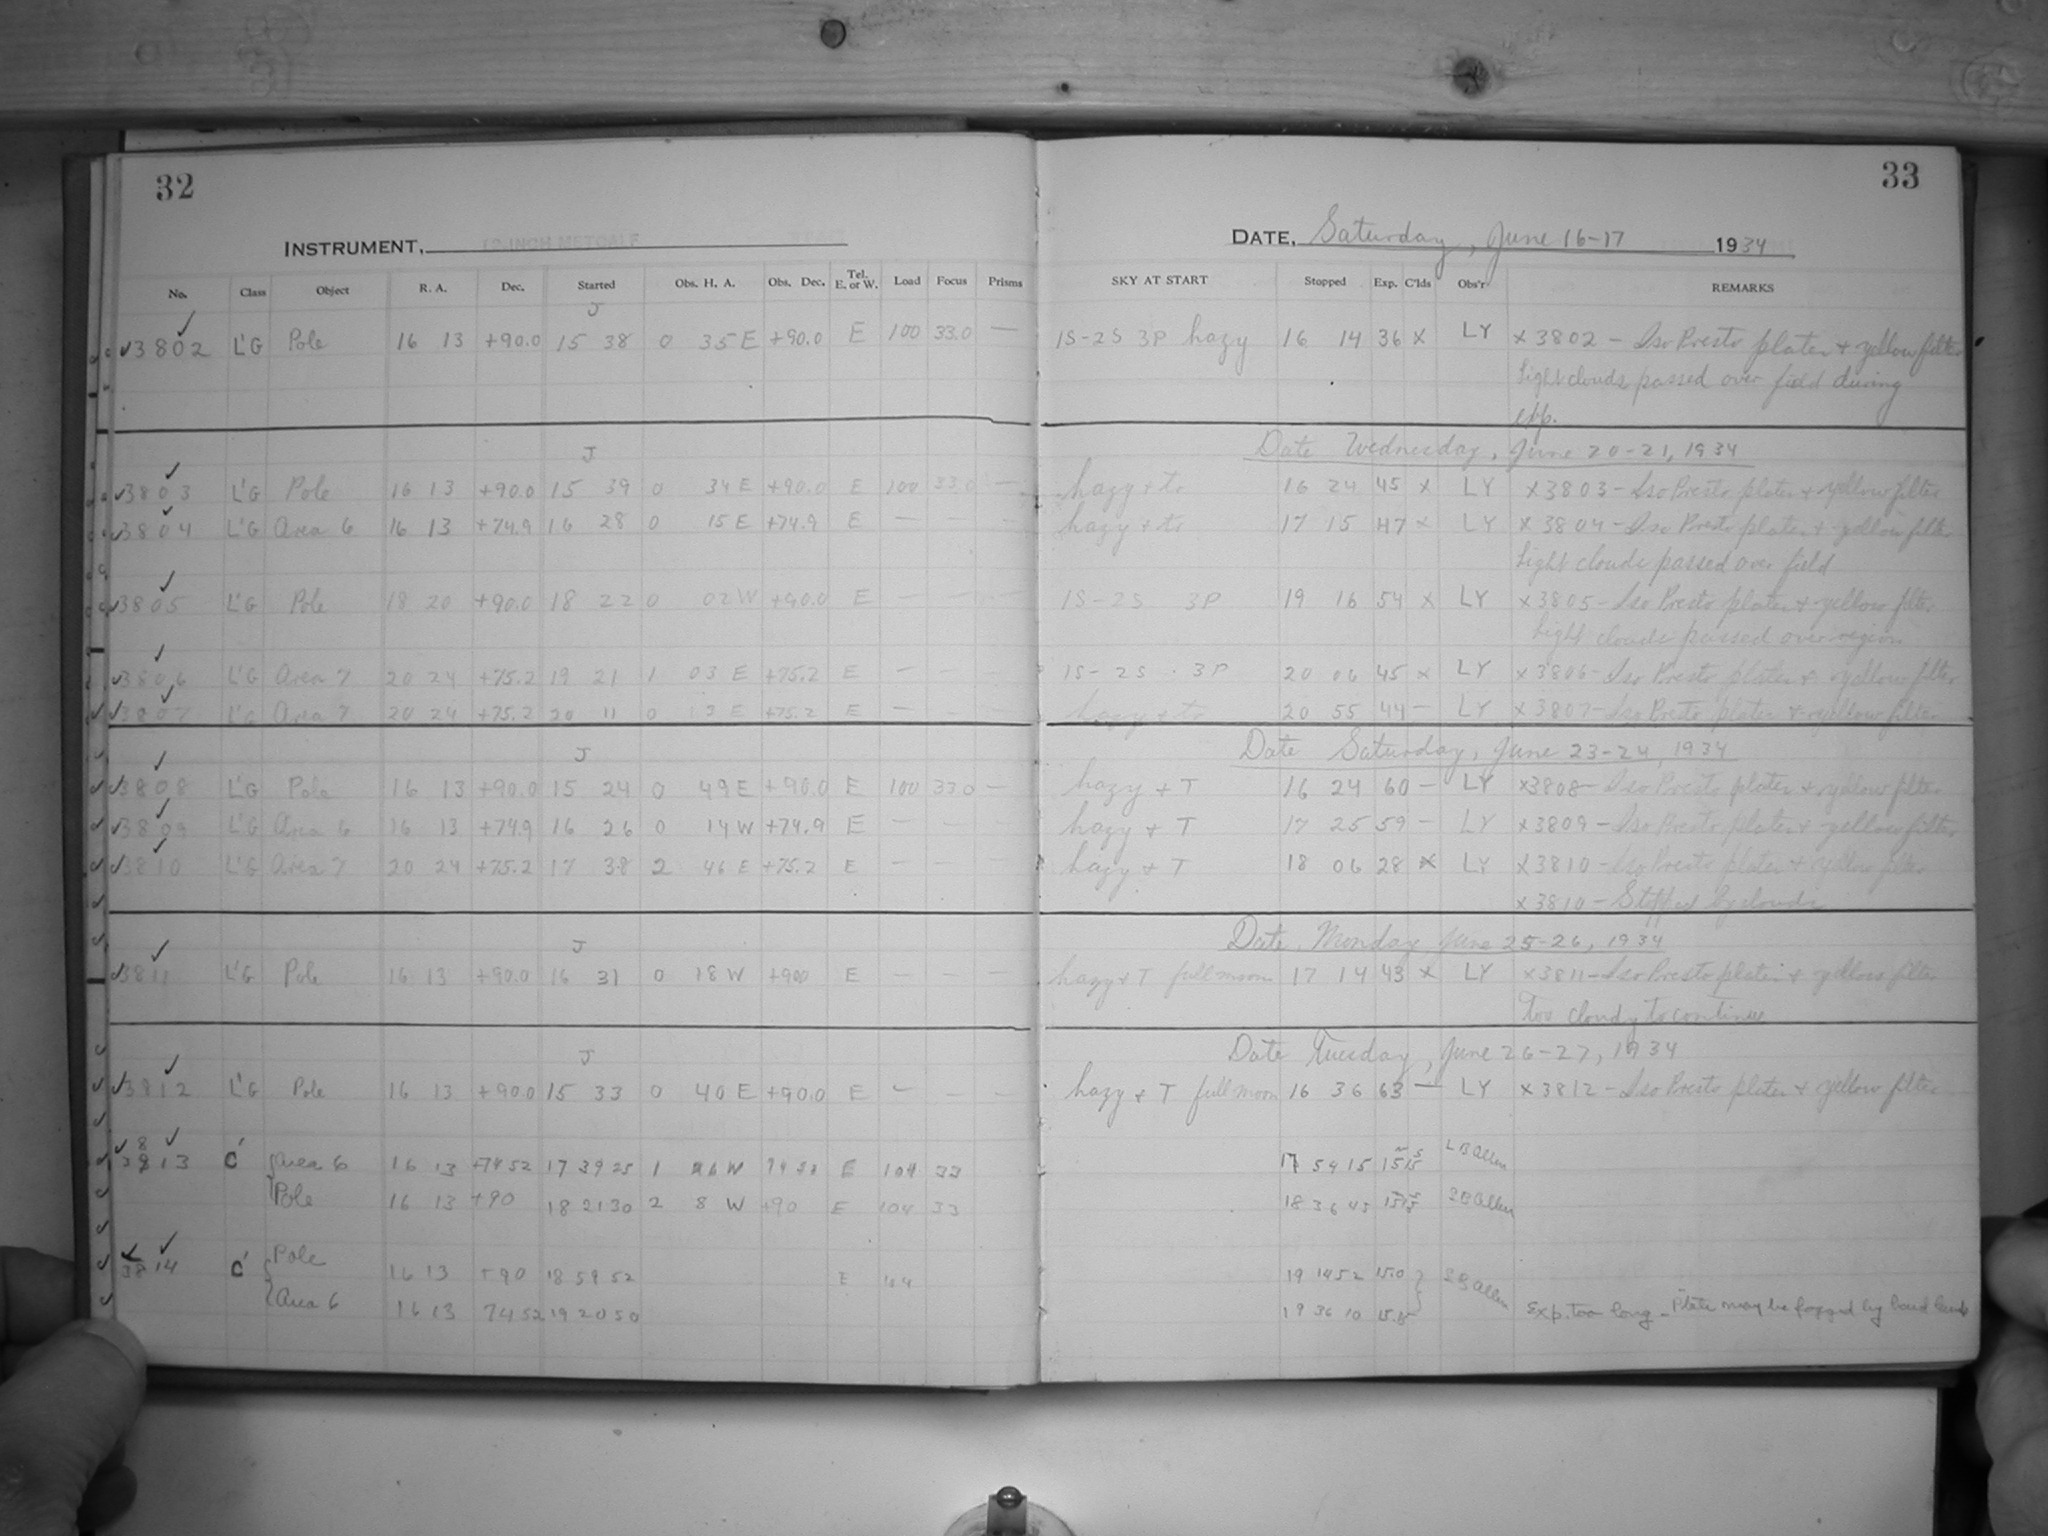 32
33
INSTRUMENT,
DATE, Saturday, June 16-17 1934
No. Class Object R. A. Dec. Started Obs. H. A. Obs. Dec. Tel. E. or W. Load Focus Prisms SKY AT START Stopped Exp. C'lds Obs'r REMARKS
J
3802 L'G Pole 16 13 +90.0 15 38 0 35 E +90.0 E 100 33.0 — 1S-2S 3P hazy 16 14 36 x LY x 3802 - Iso Presto plates + yellow filter
Light clouds passed over field during
exp.
Date Wednesday, June 20-21, 1934
J
3803 L'G Pole 16 13 +90.0 15 39 0 34 E +90.0 E 100 33.0 — hazy + tr 16 24 45 x LY x 3803 - Iso Presto plates + yellow filter
3804 L'G Area 6 16 13 +74.9 16 28 0 15 E +74.9 E — — — hazy + tr 17 15 47 x LY x 3804 - Iso Presto plates + yellow filter
Light clouds passed over field
3805 L'G Pole 18 20 +90.0 18 22 0 02 W +90.0 E — — — 1S-2S 3P 19 16 54 x LY x 3805 - Iso Presto plates + yellow filter
Light clouds passed over region
3806 L'G Area 7 20 24 +75.2 19 21 1 03 E +75.2 E — — — 1S-2S · 3P 20 06 45 x LY x 3806 - Iso Presto plates + yellow filter
3807 L'G Area 7 20 24 +75.2 20 11 0 13 E +75.2 E — — — hazy + tr 20 55 44 — LY x 3807 - Iso Presto plates + yellow filter
Date Saturday, June 23-24, 1934
J
3808 L'G Pole 16 13 +90.0 15 24 0 49 E +90.0 E 100 33.0 — hazy + T 16 24 60 — LY x3808 - Iso Presto plates + yellow filter
3809 L'G Area 6 16 13 +74.9 16 26 0 14 W +74.9 E — — — hazy + T 17 25 59 — LY x 3809 - Iso Presto plates + yellow filter
3810 L'G Area 7 20 24 +75.2 17 38 2 46 E +75.2 E — — — hazy + T 18 06 28 x LY x 3810 - Iso Presto plates + yellow filter
x 3810 - Stopped by clouds
Date Monday June 25-26, 1934
J
3811 L'G Pole 16 13 +90.0 16 31 0 18 W +900 E — — — hazy + T full moon 17 14 43 x LY x 3811 - Iso Presto plates + yellow filter
Too cloudy to continue
Date Tuesday, June 26-27, 1934
J
3812 L'G Pole 16 13 +90.0 15 33 0 40 E +90.0 E — — — hazy + T full moon 16 36 63 — LY x 3812 - Iso Presto plates + yellow filter
3813 C' Area 6 16 13 +74 52 17 39 25 1 26 W 74 52 E 104 33 17 54 15 LB Allen
Pole 16 13 +90 18 21 30 2 8 W +90 E 104 33 18 36 45 Allen
3814 C' Pole 16 13 +90 18 59 52 E 104 19 14 52 15.0 Allen
Area 6 16 13 74 52 19 20 50 19 36 10 Exp. too long - Plate may be fogged by